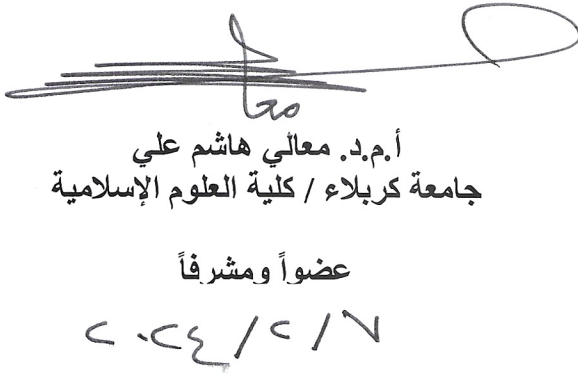 معالي
أ.م.د. معالي هاشم علي
جامعة كربلاء / كلية العلوم الإسلامية
عضواً ومشرفاً
٢٠٢٤/٢/٧